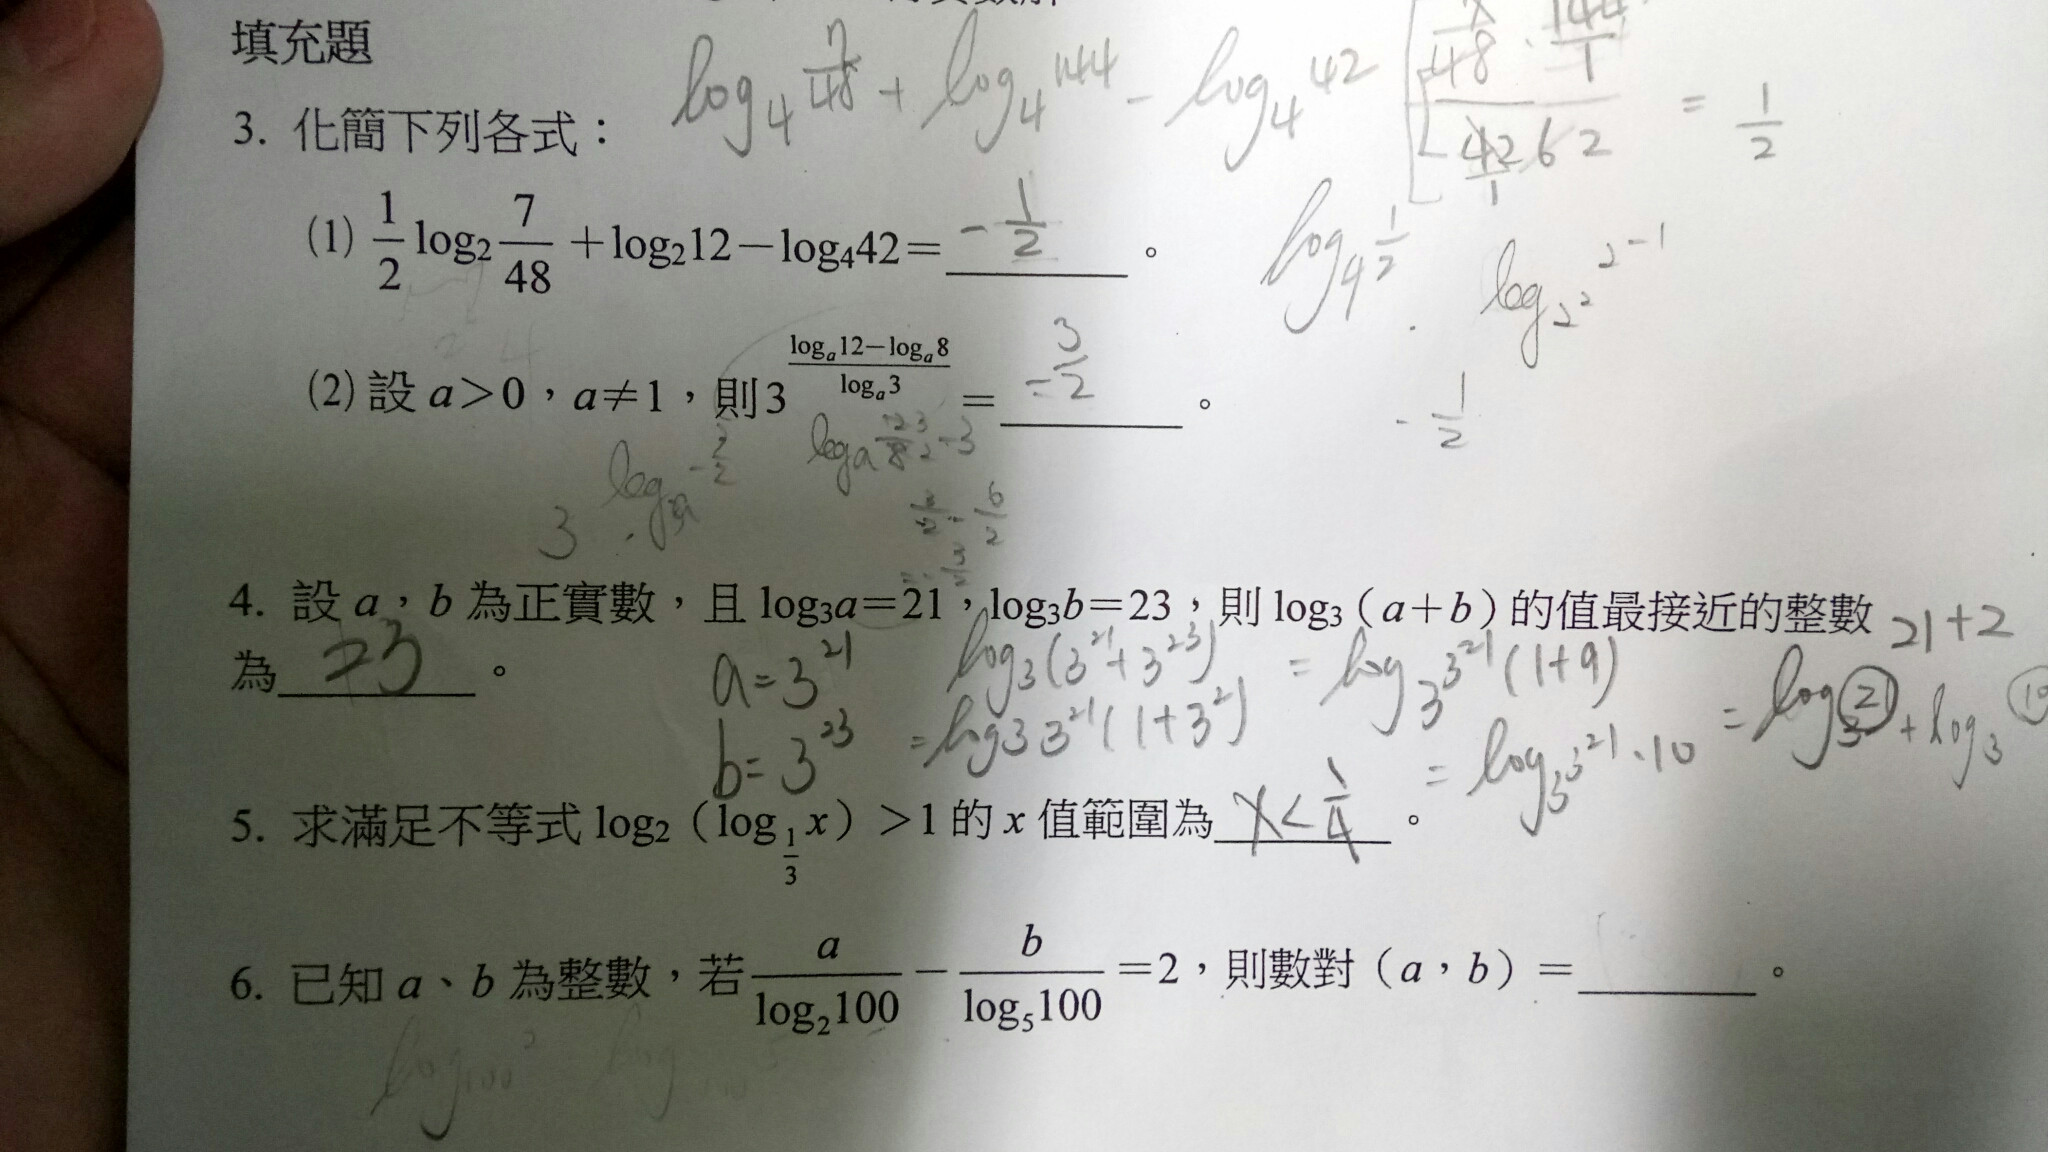 填充題
log₄ 7/48 + log₄ 144 - log₄ 42 [7/48 · 144/1 / 42 = 1/2
3. 化簡下列各式：
(1) 1/2 log₂ 7/48 + log₂12 − log₄42 = - 1/2 。
log₄ 1/2 log₂² 2⁻¹
- 1/2
(2) 設 a>0，a≠1，則 3^((logₐ12−logₐ8)/logₐ3) = 3/2 。
4. 設 a，b 為正實數，且 log₃a=21，log₃b=23，則 log₃（a+b）的值最接近的整數
為 23 。
21+2
a=3²¹ log₃(3²¹+3²³) = log₃3²¹(1+9)
b=3²³ =log₃3²¹(1+3²) = log₃3²¹·10 = log₃ 21 + log₃ 10
5. 求滿足不等式 log₂（log_(1/3) x）>1 的 x 值範圍為 x < 1/4 。
6. 已知 a、b 為整數，若 a/log₂100 − b/log₅100 =2，則數對（a，b）= 。
log₁₀₀²